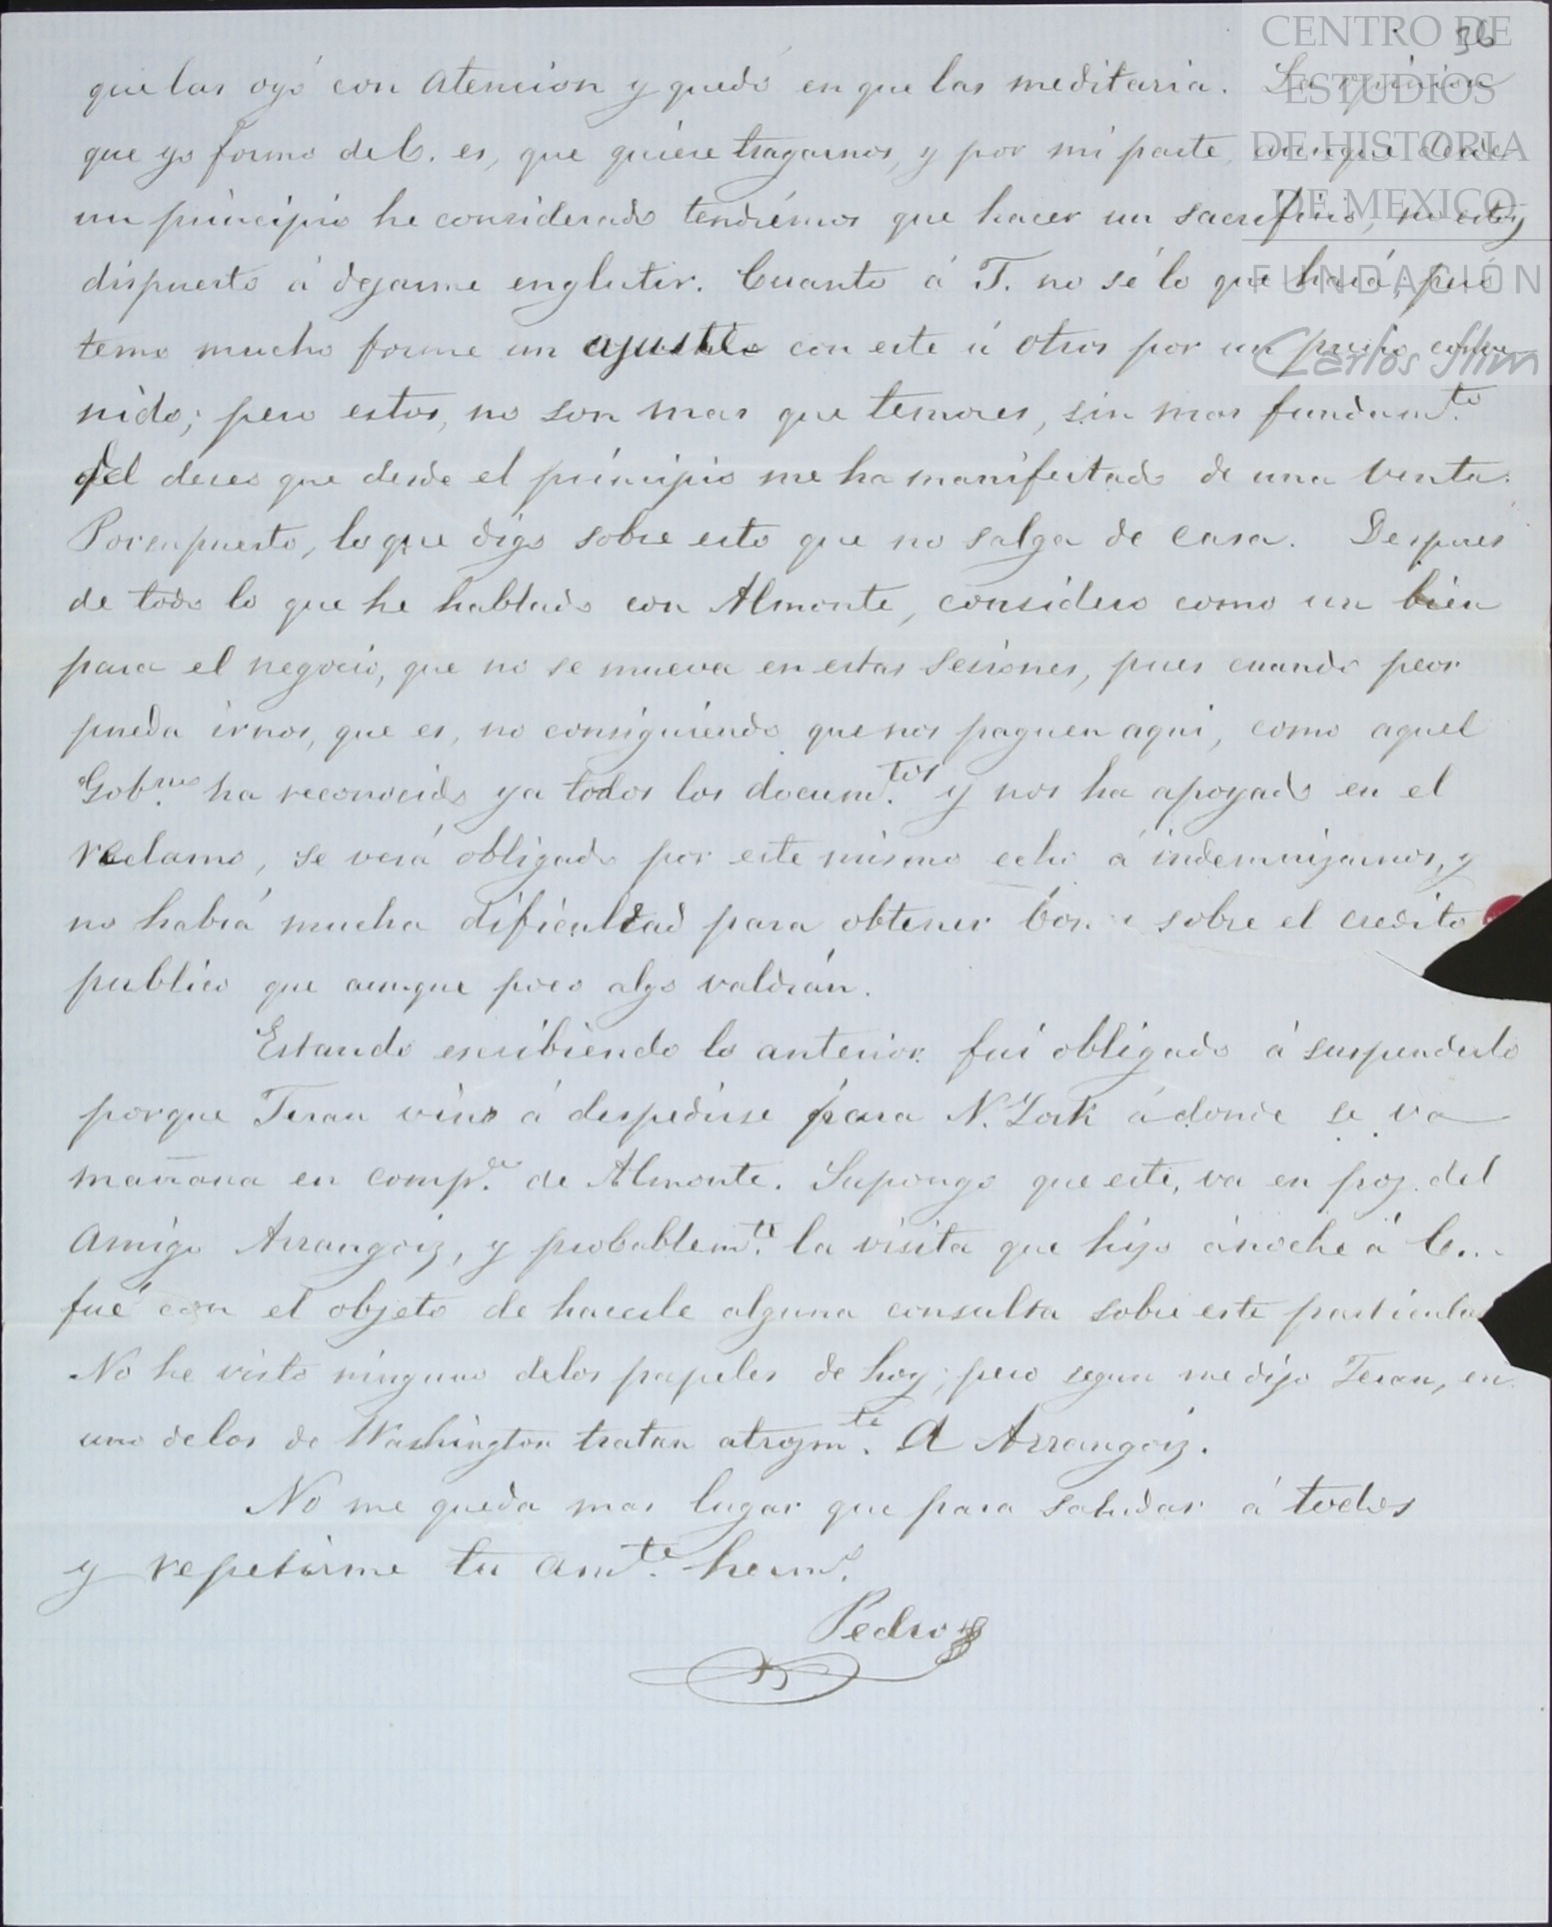 36
CENTRO DE
ESTUDIOS
DE HISTORIA
DE MEXICO
FUNDACIÓN
Carlos Slim
que las oyó con atencion y quedó en que las meditaria. La opinion
que yo formo de C. es, que quiere tragarnos, y por mi parte, aunque desde
un principio he considerado tendrémos que hacer un sacrificio, no estoy
dispuesto á dejarme englutir. Cuanto á T. no sé lo que hará, pero
temo mucho forme un ajuste con este ú otros por un precio conve
nido; pero estos, no son mas que temores, sin mas fundamto.
del deseo que desde el principio me ha manifestado de una venta.
Por supuesto, lo que digo sobre esto que no salga de casa. Despues
de todo lo que he hablado con Almonte, considero como un bien
para el negocio, que no se mueva en estas sesiones, pues cuando peor
pueda irnos, que es, no consiguiendo que nos paguen aqui, como aquel
Gobno. ha reconocido ya todos los documtos. y nos ha apoyado en el
reclamo, se verá obligado por este mismo echo á indemnizarnos, y
no habrá mucha dificultad para obtener sobre el credito
publico que aunque poco algo valdrán.
Estando escribiendo lo anterior fui obligado á suspenderlo
porque Teran vino á despedirse para N. York á donde se va
mañana en compa. de Almonte. Supongo que este, va en pos del
amigo Arrangoiz, y probablemte. la visita que hizo anoche á C...
fué con el objeto de hacerle alguna consulta sobre este particular
No he visto ninguno de los papeles de hoy; pero segun me dijo Teran, en
uno de los de Washington tratan atrozmte. A Arrangoiz.
No me queda mas lugar que para saludar á todos
y repetirme tu amte. hermo.
Pedro